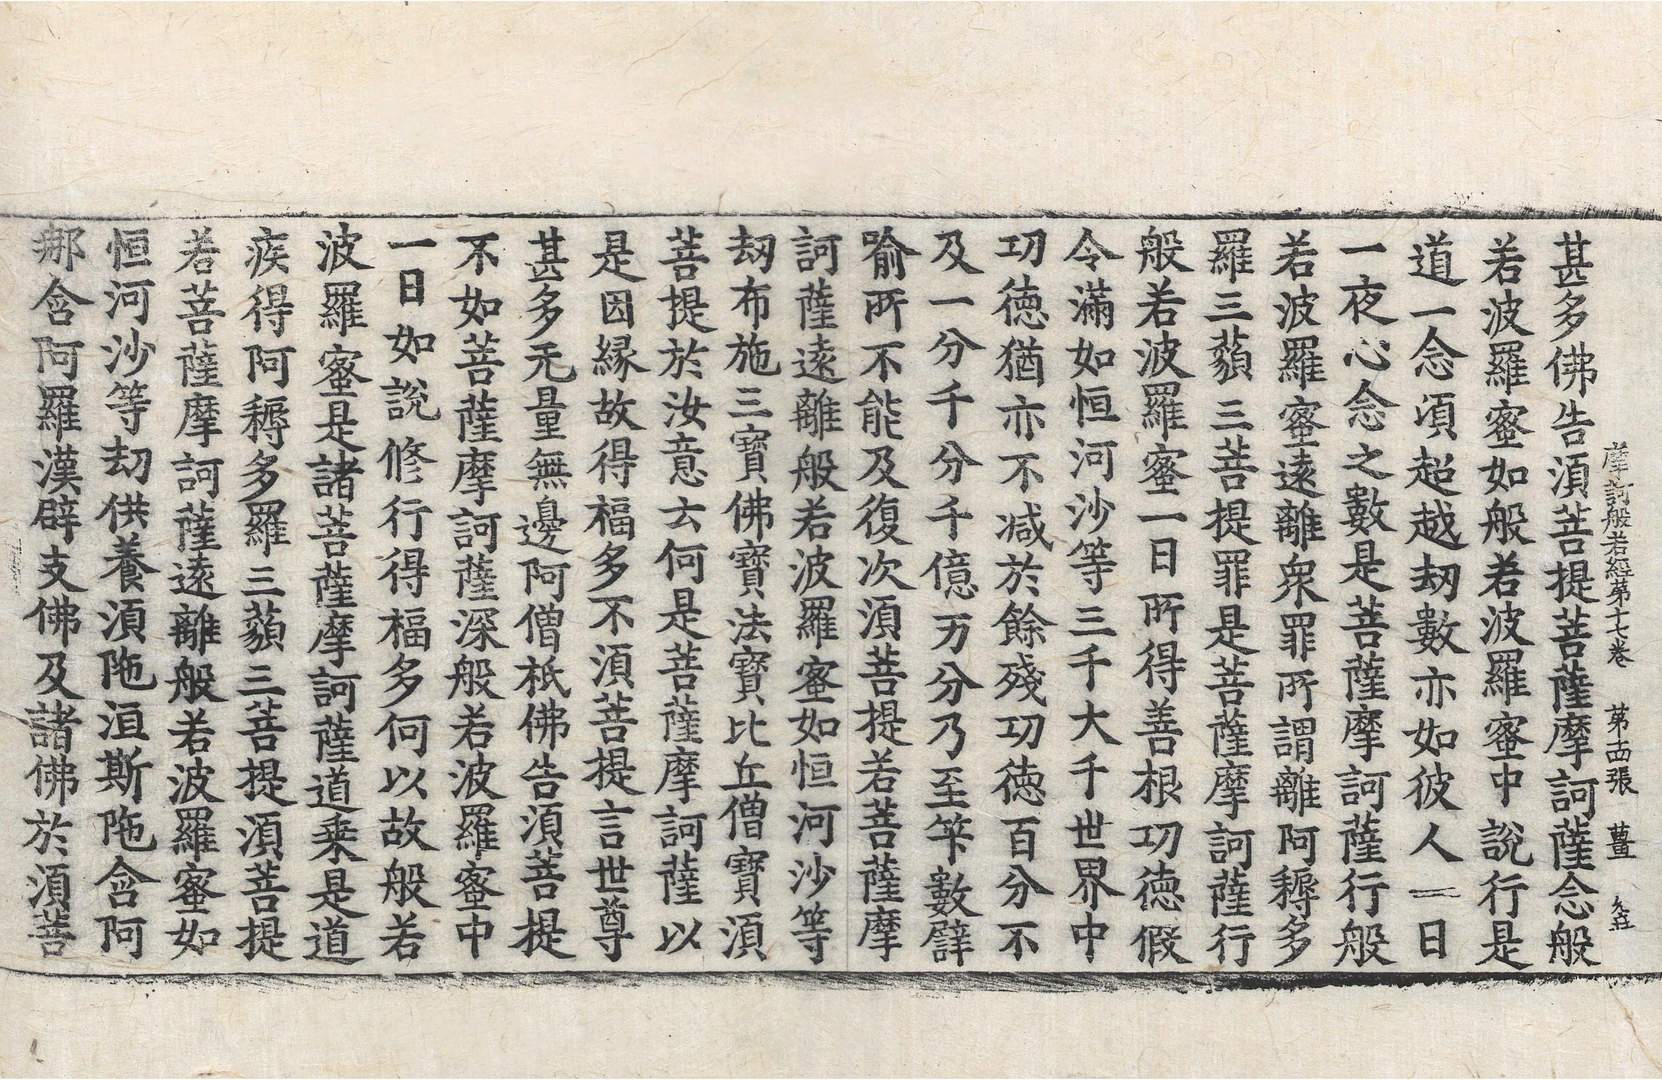 摩訶般若經第十七卷 第十四張 薑 

甚多佛告湏菩提菩薩摩訶薩念般
若波羅蜜如般若波羅蜜中說行是
道一念頃超越劫數亦如彼人一日
一夜心念之數是菩薩摩訶薩行般
若波羅蜜遠離衆罪所謂離阿耨多
羅三藐三菩提罪是菩薩摩訶薩行
般若波羅蜜一日所得善根功德假
令滿如恒河沙等三千大千世界中
功德猶亦不减於餘殘功德百分不
及一分千分千億万分乃至筭數譬
喻所不能及復次湏菩提若菩薩摩
訶薩遠離般若波羅蜜如恒河沙等
劫布施三寶佛寶法寶比丘僧寶湏
菩提於汝意云何是菩薩摩訶薩以
是因緣故得福多不湏菩提言世尊
甚多无量無邊阿僧祇佛告湏菩提
不如菩薩摩訶薩深般若波羅蜜中
一日如說修行得福多何以故般若
波羅蜜是諸菩薩摩訶薩道乘是道
疾得阿耨多羅三藐三菩提湏菩提
若菩薩摩訶薩遠離般若波羅蜜如
恒河沙等劫供養湏陁洹斯陁含阿
那含阿羅漢辟支佛及諸佛於湏菩